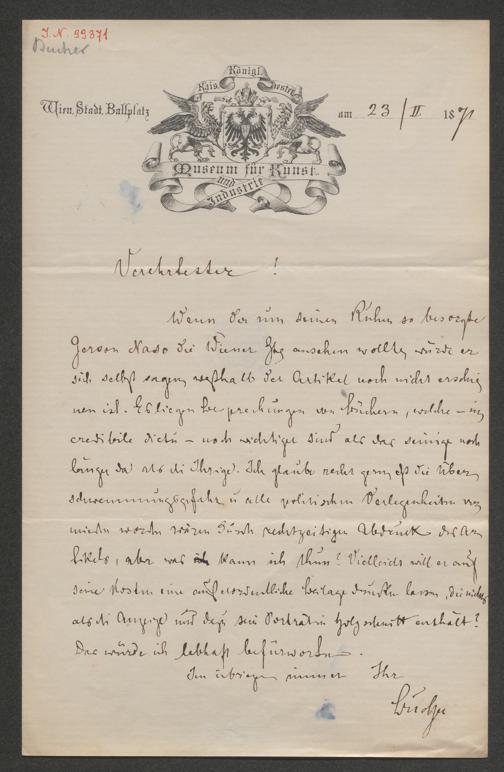 I. N. 99371
Bucher
Kais. Königl. Oesterr.
Museum für Kunst
und
Industrie
Wien, Stadt, Ballplatz
am 23/II. 1871
Verehrtester !
Wenn der um seinen Ruhm so besorgte
Gerson Naso die Wiener Ztg ansehen wollte, würde er
sich selbst sagen, weßhalb der Artikel noch nicht erschie
nen ist. Es liegen Besprechungen von Büchern, welche – in
credibile dictu – noch wichtiger sind als das seinige noch
länger da als die Ihrige. Ich glaube recht gern, daß die Über
schwemmungsgefahr u alle politischen Verlegenheiten ver
mieden worden wären durch rechtzeitigen Abdruck des Ar
tikels, aber was kann ich thun? Vielleicht will er auf
seine Kosten eine außerordentliche Beilage drucken lassen, die nichts
als die Anzeige und dazu sein Porträt in Holzschnitt enthält?
Das würde ich lebhaft befürworten.
Im übrigen immer Ihr
Bucher